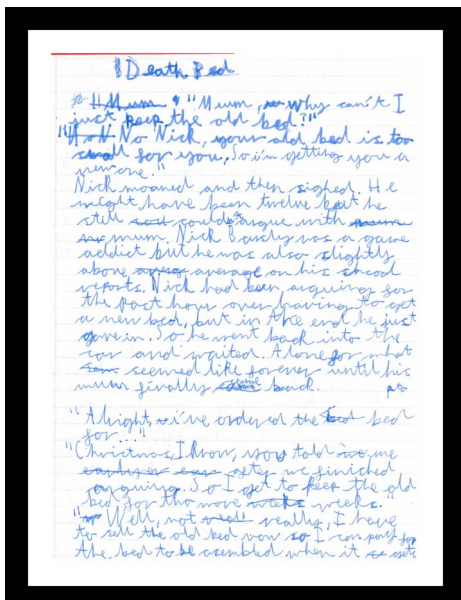 Death Bed
"Mum, why can't I
just keep the old bed?"
"No Nick, your old bed is too
small for you, So i'm getting you a
new one."
Nick moaned and then sighed. He
might have been twelve but he
still couldn't argue with
mum. Nick was a game
addict but he was also slightly
above average on his school
reports. Nick had been arguing for
the past hour over having to get
a new bed, but in the end he just
gave in. So he went back into the
car and waited. Alone for what
seemed like forever until his
mum finally came back.
"Alright, i've ordered the bed
for..."
"Christmas, I know, you told me
after we finished
arguing. So I get to keep the old
bed for two more weeks."
"Well, not really, I have
to sell the old bed now so I can pay for
the bed to be asembled when it gets